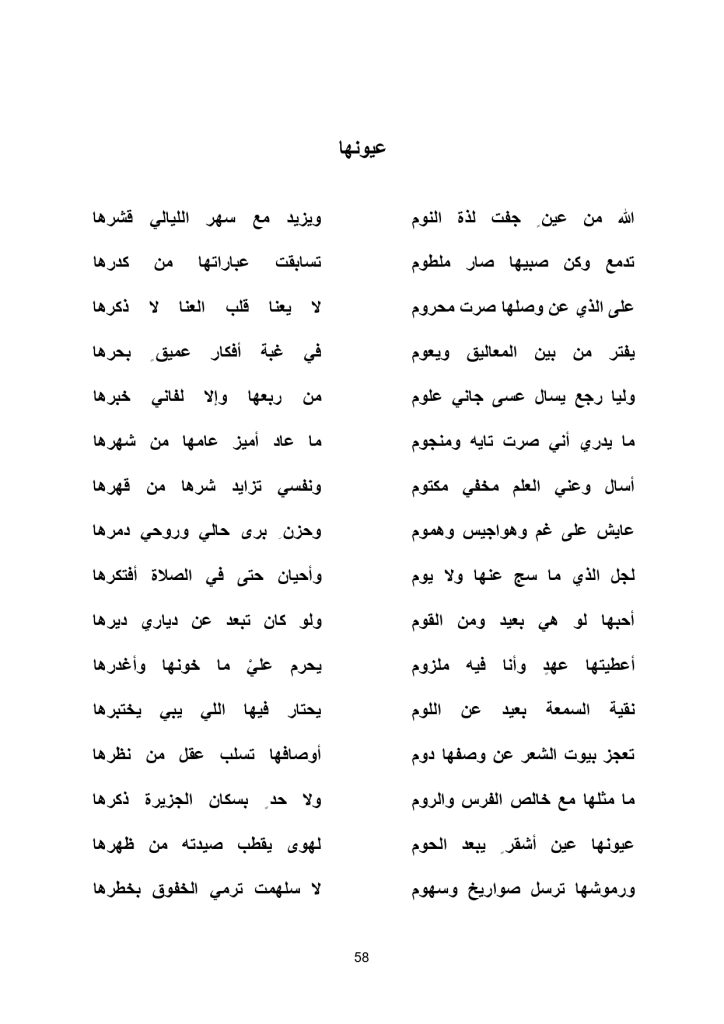 عيونها
الله من عينٍ جفت لذة النوم ويزيد مع سهر الليالي قشرها
تدمع وكن صبيها صار ملطوم تسابقت عباراتها من كدرها
على الذي عن وصلها صرت محروم لا يعنا قلب العنا لا ذكرها
يفتر من بين المعاليق ويعوم في غبة أفكار عميقٍ بحرها
وليا رجع يسال عسى جاني علوم من ربعها وإلا لفاني خبرها
ما يدري أني صرت تايه ومنجوم ما عاد أميز عامها من شهرها
أسال وعني العلم مخفي مكتوم ونفسي تزايد شرها من قهرها
عايش على غم وهواجيس وهموم وحزنٍ برى حالي وروحي دمرها
لجل الذي ما سج عنها ولا يوم وأحيان حتى في الصلاة أفتكرها
أحبها لو هي بعيد ومن القوم ولو كان تبعد عن دياري ديرها
أعطيتها عهدٍ وأنا فيه ملزوم يحرم عليْ ما خونها وأغدرها
نقية السمعة بعيد عن اللوم يحتار فيها اللي يبي يختبرها
تعجز بيوت الشعر عن وصفها دوم أوصافها تسلب عقل من نظرها
ما مثلها مع خالص الفرس والروم ولا حدٍ بسكان الجزيرة ذكرها
عيونها عين أشقرٍ يبعد الحوم لهوى يقطب صيدته من ظهرها
ورموشها ترسل صواريخ وسهوم لا سلهمت ترمي الخفوق بخطرها
58